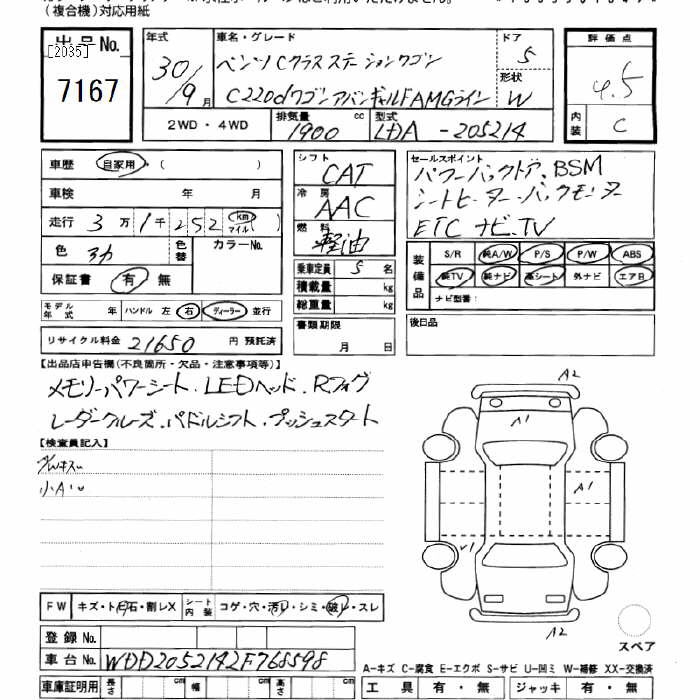 (複合機)対応用紙
出品No.
[2035]
7167
年式 車名・グレード ドア 評価点
30/9月 ベンツCクラスステーションワゴン 5 4.5
形状
C220dワゴンアバンギャルドAMGライン W 内装 C
2WD・4WD 排気量 1900 cc 型式 LDA-205214
車歴 自家用・( )
車検 年 月
走行 3万1千252 km マイル ( )
色 色替 カラーNo.
保証書 有・無
モデル年式 年 ハンドル 左 右 ディーラー 並行
リサイクル料金 21650 円 預託済
シフト CAT
冷房 AAC
燃料 軽油
乗車定員 5 名
積載量 kg
総重量 kg
書類期限
月 日
セールスポイント
パワーバックドア、BSM
シートヒーター・バックモニター
ETC ナビ、TV
装備品 S/R 純A/W P/S P/W ABS
純TV 純ナビ 革シート 外ナビ エアB
ナビ型番:
後日品
【出品店申告欄(不良箇所・欠品・注意事項等)】
メモリーパワーシート、LEDヘッド、Rフォグ
レーダークルーズ、パドルシフト、プッシュスタート
【検査員記入】
小A
A2
A1
A1
A2
FW キズ・トビ石・割レX シート内装 コゲ・穴・汚レ・シミ・破レ・スレ
登録No.
車台No. WDD2052142F768598
車庫証明用 長さ cm 幅 cm 高さ cm
スペア
A-キズ C-腐食 E-エクボ S-サビ U-凹ミ W-補修 XX-交換済
工具 有・無 ジャッキ 有・無